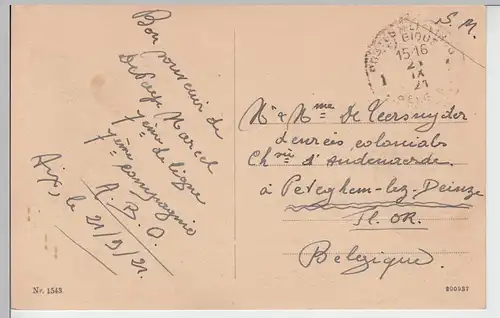 Bon souvenir de
Marcel
7ème de ligne
7ème compagnie
A.B.O.
Aix, le 21/9/21.
S.M.
POSTES MILITAIRES
BELGIQUE
15-16
21
IX
21
Mr & Mme De Keersnyder
denrées coloniales
Chée d'Audenaerde.
à Peteghem-lez-Deinze
Fl. OR.
Belgique.
Nr. 1543